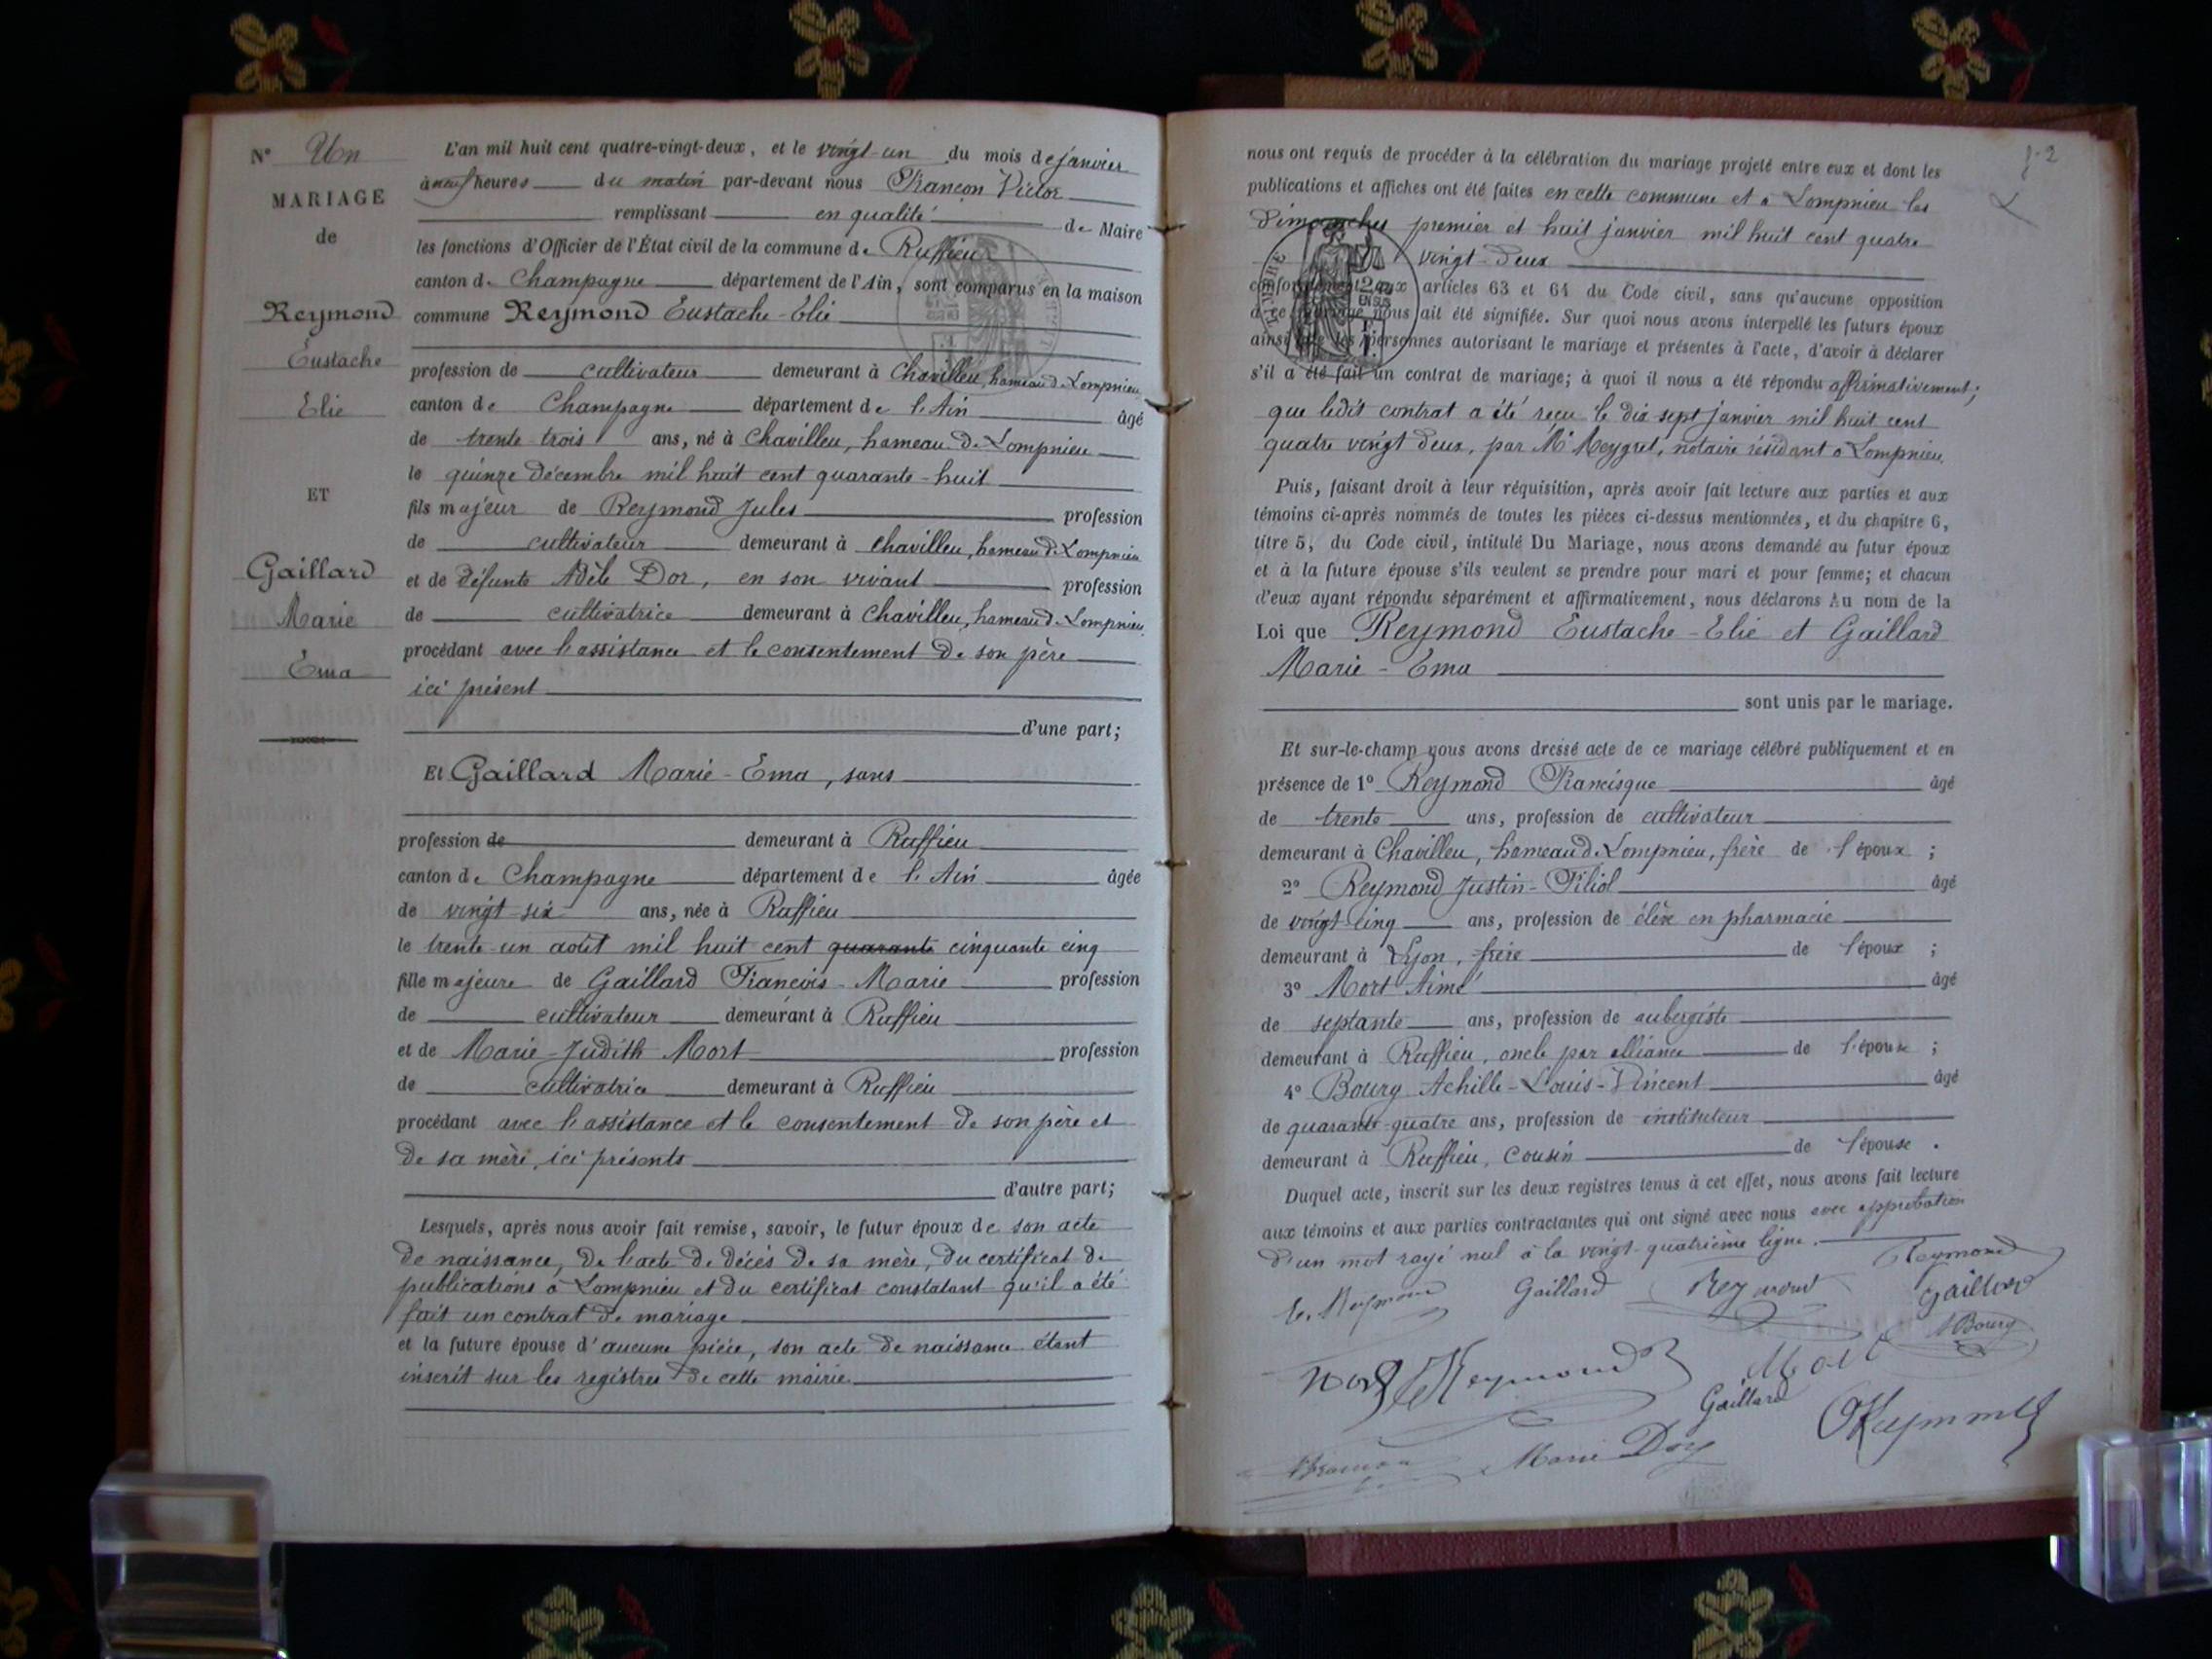 N° Un
MARIAGE
de
Reymond
Eustache
Elie
ET
Gaillard
Marie
Ema
L'an mil huit cent quatre-vingt-deux, et le vingt-un du mois de janvier
à neuf heures du matin par-devant nous Françon Victor
remplissant en qualité de Maire
les fonctions d'Officier de l'État civil de la commune de Ruffieu
canton de Champagne département de l'Ain, sont comparus en la maison
commune Reymond Eustache-Elie
profession de cultivateur demeurant à Chavilleu, hameau de Lompnieu
canton de Champagne département de l'Ain âgé
de trente trois ans, né à Chavilleu, hameau de Lompnieu
le quinze décembre mil huit cent quarante-huit
fils majeur de Reymond Jules profession
de cultivateur demeurant à Chavilleu, hameau de Lompnieu
et de défunte Adèle Dor, en son vivant profession
de cultivatrice demeurant à Chavilleu, hameau de Lompnieu
procédant avec l'assistance et le consentement de son père
ici présent
d'une part;
Et Gaillard Marie-Ema, sans
profession de demeurant à Ruffieu
canton de Champagne département de l'Ain âgée
de vingt-six ans, née à Ruffieu
le trente-un août mil huit cent quarante cinquante cinq
fille majeure de Gaillard François-Marie profession
de cultivateur demeurant à Ruffieu
et de Marie-Judith Mort profession
de cultivatrice demeurant à Ruffieu
procédant avec l'assistance et le consentement de son père et
de sa mère, ici présents
d'autre part;
Lesquels, après nous avoir fait remise, savoir, le futur époux de son acte
de naissance, de l'acte de décès de sa mère, du certificat de
publications à Lompnieu et du certificat constatant qu'il a été
fait un contrat de mariage
et la future épouse d'aucune pièce, son acte de naissance étant
inscrit sur les registres de cette mairie.
nous ont requis de procéder à la célébration du mariage projeté entre eux et dont les
publications et affiches ont été faites en cette commune et à Lompnieu les
dimanches premier et huit janvier mil huit cent quatre
vingt-deux
conformément aux articles 63 et 64 du Code civil, sans qu'aucune opposition
à ce mariage nous ait été signifiée. Sur quoi nous avons interpellé les futurs époux
ainsi que les personnes autorisant le mariage et présentes à l'acte, d'avoir à déclarer
s'il a été fait un contrat de mariage; à quoi il nous a été répondu affirmativement;
que ledit contrat a été reçu le dix sept janvier mil huit cent
quatre vingt deux, par Me Meygret, notaire résidant à Lompnieu.
Puis, faisant droit à leur réquisition, après avoir fait lecture aux parties et aux
témoins ci-après nommés de toutes les pièces ci-dessus mentionnées, et du chapitre 6,
titre 5, du Code civil, intitulé Du Mariage, nous avons demandé au futur époux
et à la future épouse s'ils veulent se prendre pour mari et pour femme; et chacun
d'eux ayant répondu séparément et affirmativement, nous déclarons Au nom de la
Loi que Reymond Eustache-Elie et Gaillard
Marie-Ema
sont unis par le mariage.
Et sur-le-champ nous avons dressé acte de ce mariage célébré publiquement et en
présence de 1° Reymond Francisque âgé
de trente ans, profession de cultivateur
demeurant à Chavilleu, hameau de Lompnieu, frère de l'époux ;
2° Reymond Justin-Filiol âgé
de vingt cinq ans, profession de élève en pharmacie
demeurant à Lyon, frère de l'époux ;
3° Mort Aimé âgé
de septante ans, profession de aubergiste
demeurant à Ruffieu, oncle par alliance de l'épouse ;
4° Bourg Achille-Louis-Vincent âgé
de quarante-quatre ans, profession de instituteur
demeurant à Ruffieu, cousin de l'épouse .
Duquel acte, inscrit sur les deux registres tenus à cet effet, nous avons fait lecture
aux témoins et aux parties contractantes qui ont signé avec nous avec approbation
d'un mot rayé nul à la vingt-quatrième ligne.
Reymond
E. Reymond Gaillard Reymond Gaillard
Bourg
Mort Reymond Mort
Gaillard Reymond
Françon Marie Dor